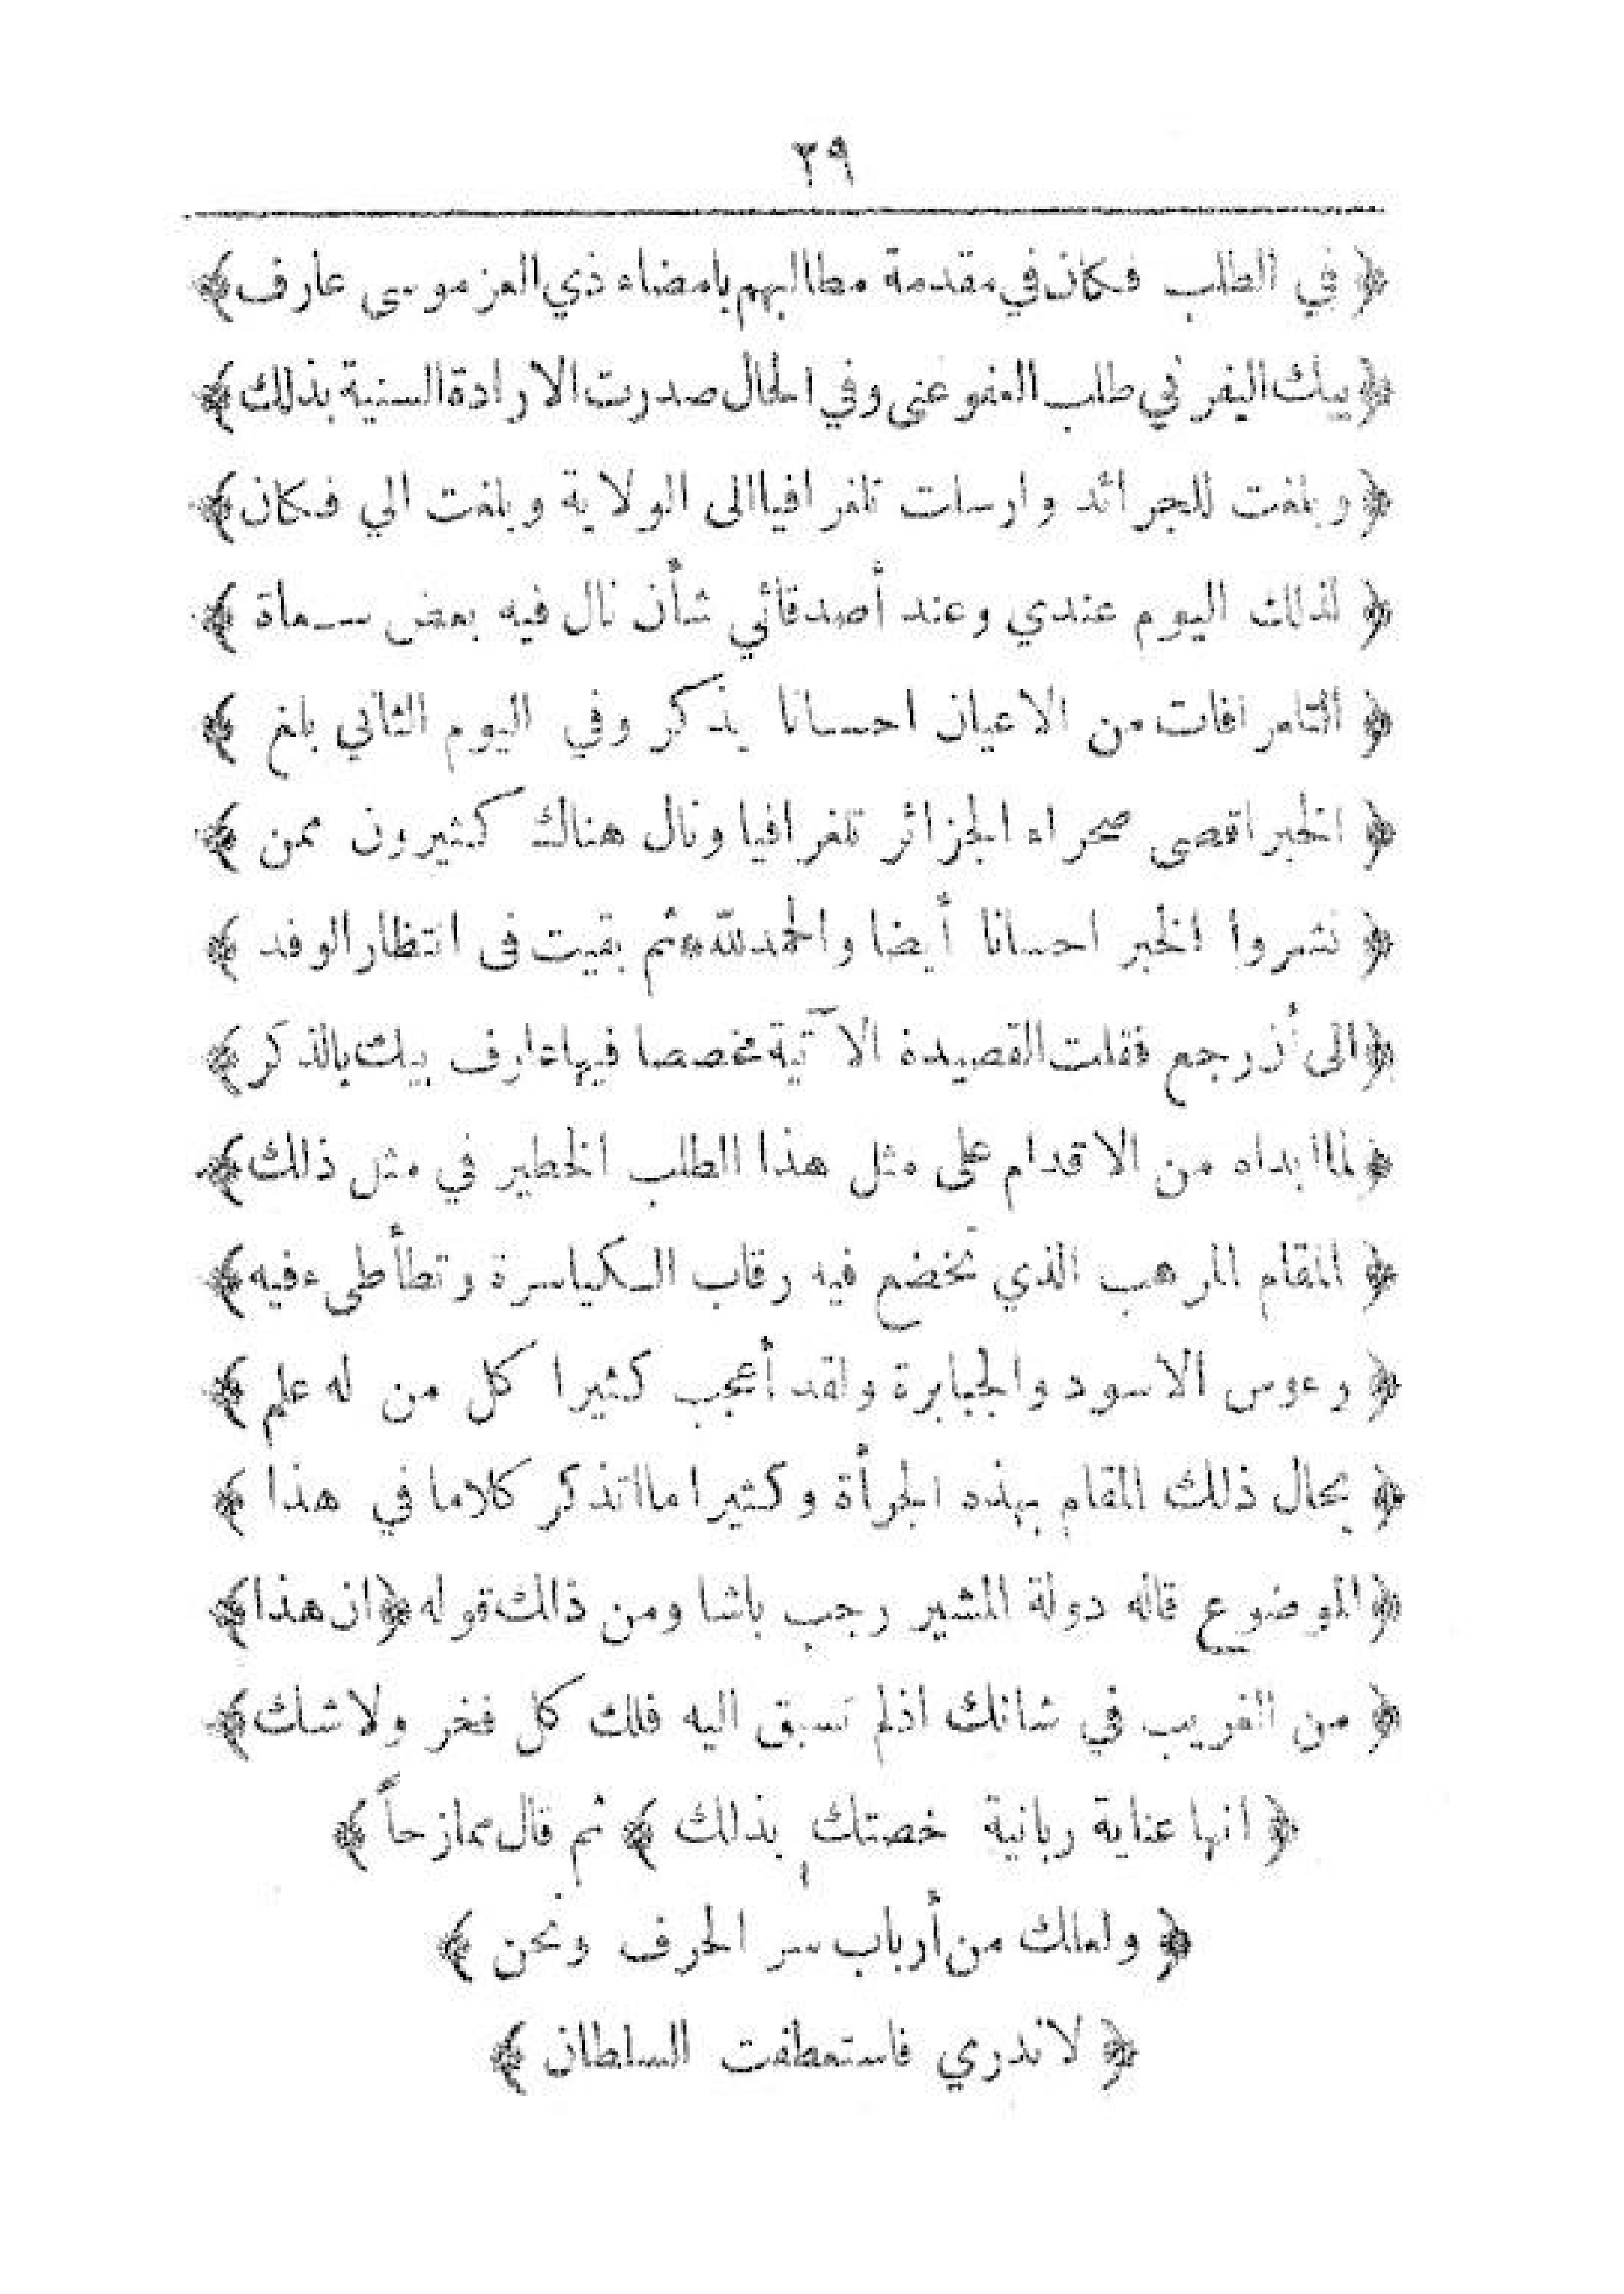 ٣٩
﴿ في الطلب فكان في مقدمة مطالبهم بامضاء ذي العز موسى عارف ﴾
﴿ بيك اليفر في طلب العفو عني وفي الحال صدرت الارادة السنية بذلك ﴾
﴿ وبلغت للجرائد وارسلت تلغرافيا الى الولاية وبلغت الي فكان ﴾
﴿ لذلك اليوم عندي وعند أصدقائي شأن نال فيه بعض سعاة ﴾
﴿ التلغرافات من الاعيان احسانا يذكر وفي اليوم الثاني بلغ ﴾
﴿ الخبر اقصى صحراء الجزائر تلغرافيا ونال هناك كثيرون ممن ﴾
﴿ نشروا الخبر احسانا أيضا والحمد لله * ثم بقيت فى انتظار الوفد ﴾
﴿ الى أن رجع فقلت القصيدة الآتية مخصصا فيها عارف بيك بالذكر ﴾
﴿ لما ابداه من الاقدام على مثل هذا الطلب الخطير في مثل ذلك ﴾
﴿ المقام المرهب الذي تخضع فيه رقاب الكياسرة وتطأطىء فيه ﴾
﴿ رءوس الاسود والجبابرة ولقد أعجب كثيرا كل من له علم ﴾
﴿ بحال ذلك المقام بهذه الجرأة وكثيرا ما اتذكر كلاما في هذا ﴾
﴿ الموضوع قاله دولة المشير رجب باشا ومن ذلك قوله ﴿ ان هذا ﴾
﴿ من الغريب في شانك اذ لم تسبق اليه فلك كل فخر ولا شك ﴾
﴿ انها عناية ربانية خصتك بذلك ﴾ ثم قال ممازحاً ﴾
﴿ ولعلك من أرباب سر الحرف ونحن ﴾
﴿ لا ندري فاستعطفت السلطان ﴾